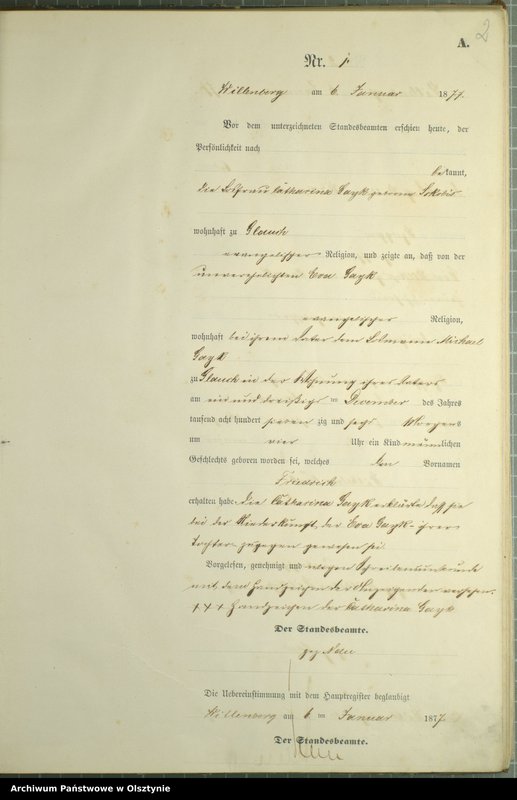 2
A.
Nr. 1
Willenberg am 6. Januar 1877.
Vor dem unterzeichneten Standesbeamten erschien heute, der
Persönlichkeit nach
bekannt,
die Losfrau Catharina Gayk geborene
wohnhaft zu Glauch
evangelischer Religion, und zeigte an, daß von der
unverehelichten Eva Gayk
evangelischer Religion,
wohnhaft bei ihrem Vater dem Losmann Michael
Gayk
zu Glauch in der Wohnung ihres Vaters
am ein und dreißigs ten December des Jahres
tausend acht hundert sieben zig und sechs Morgens
um vier Uhr ein Kind männlichen
Geschlechts geboren worden sei, welches den Vornamen
Friedrich
erhalten habe. Die Catharina Gayk erklärte daß sie
bei der Niederkunft der Eva Gayk ihrer
Tochter zugegen gewesen sei.
Vorgelesen, genehmigt und wegen Schreibensunkunde
mit dem Handzeichen der Anzeigenden versehen.
+++ Handzeichen der Catharina Gayk
Der Standesbeamte.
gez
Die Uebereinstimmung mit dem Hauptregister beglaubigt
Willenberg am 6 ten Januar 1877.
Der Standesbeamte.
Archiwum Państwowe w Olsztynie